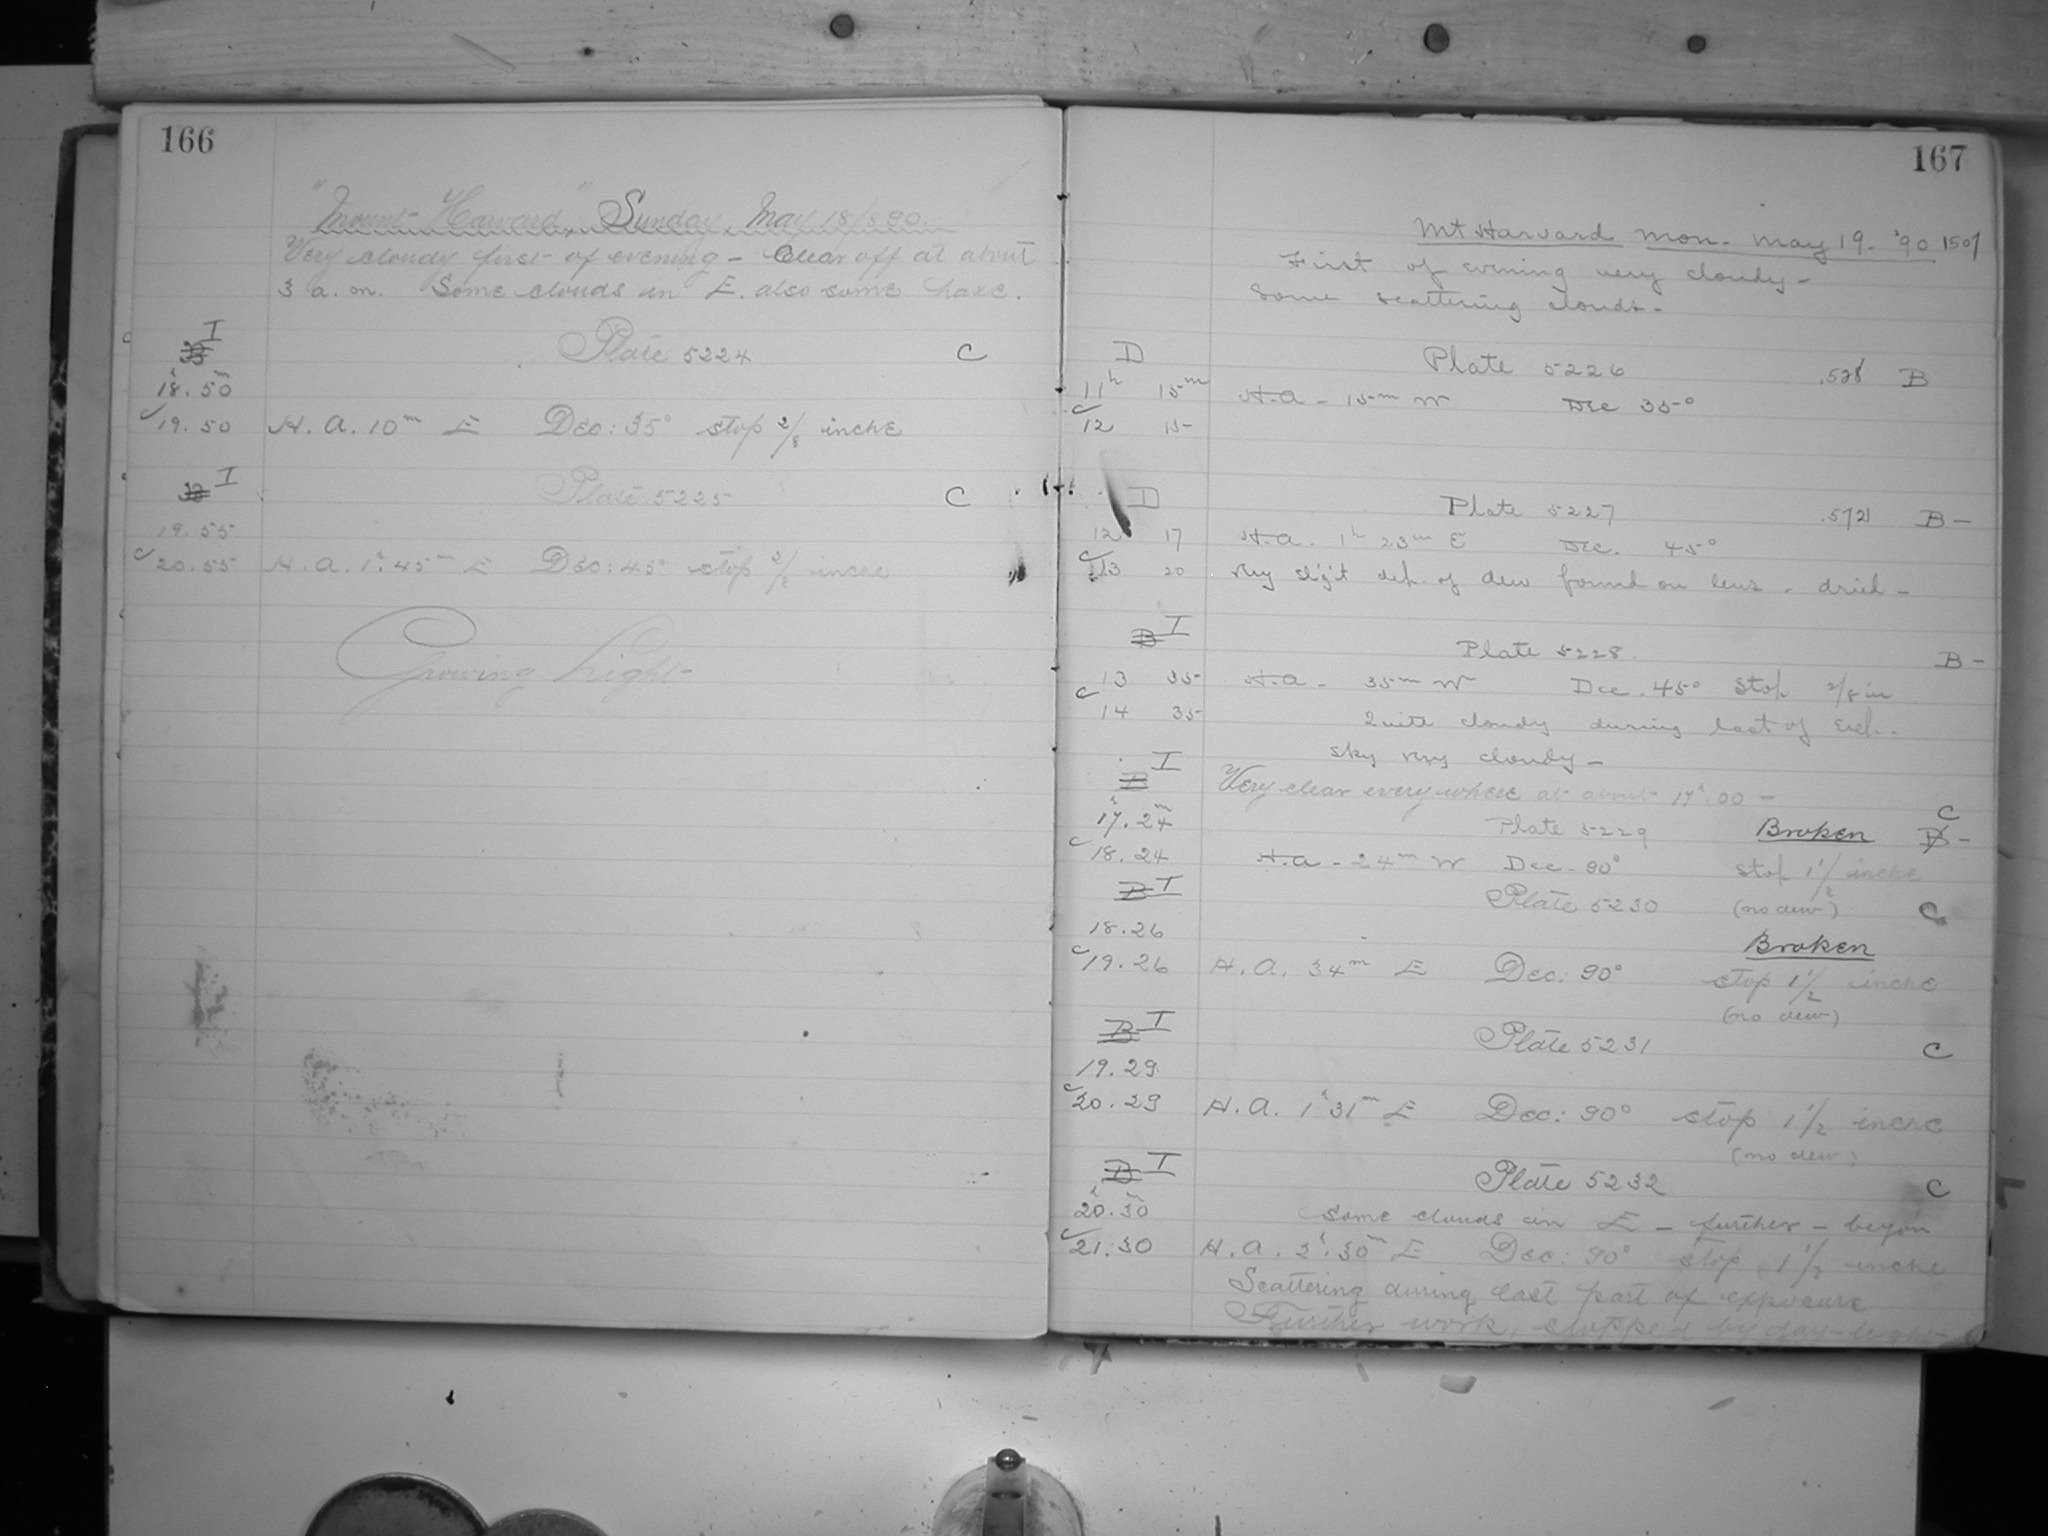 166
"Mount Harvard," Sunday, May 18/890.
Very cloudy first of evening – Clear off at about
3 a.m. Some clouds in E. also some haze.
I Plate 5224 C
18h.50m
19.50 H.A. 10m E Dec: 35° stop 2/8 inche
I Plate 5225 C
19.55
20.55 H.A. 1h:45m E Dec: 45° stop 2/8 inche
Growing Light
167
Mt Harvard Mon. May 19. '90 1507
First of evening very cloudy –
Some scattering clouds.
D Plate 5226 .528 B
11h 15m H.A – 15m W Dec 35°
12 15
D Plate 5227 .572 B –
12 17 H.A. 1h 23m E Dec. 45°
13 20 Very sl'g't dep. of dew found on lens. dried –
B I Plate 5228. B –
13 35 H.A – 35m W Dec. 45° Stop 2/8 in
14 35 Quite cloudy during last of exp.
sky very cloudy –
B I Very clear everywhere at about 17h.00 –
17h.24m Plate 5229 Broken B – C
18.24 H.A – 24m W Dec. 90° stop 1 1/2 inche
B I Plate 5230 (no dew) C
18.26 Broken
19.26 H.A. 34m E Dec: 90° stop 1 1/2 inche
(no dew)
B I Plate 5231 C
19.29
20.29 H.A. 1h 31m E Dec: 90° stop 1 1/2 inche
(no dew)
B I Plate 5232 C
20h.30m Some clouds in E – further – begon
21.30 H.A. 2h.30m E Dec: 90° stop 1 1/2 inche
Scattering during last part of exposure
Further work, stopped by day-light –